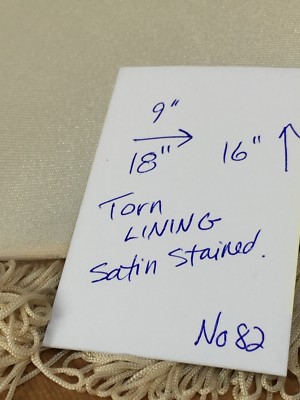 9"
18" 16"
Torn
LINING
Satin Stained.
No 82